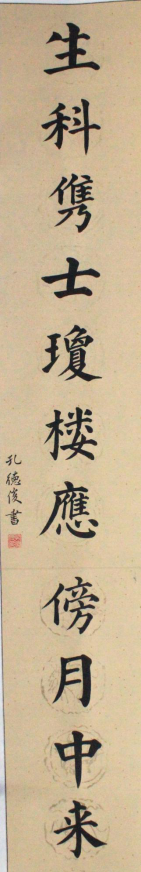 生科儁士瓊楼應傍月中来
孔德俊書